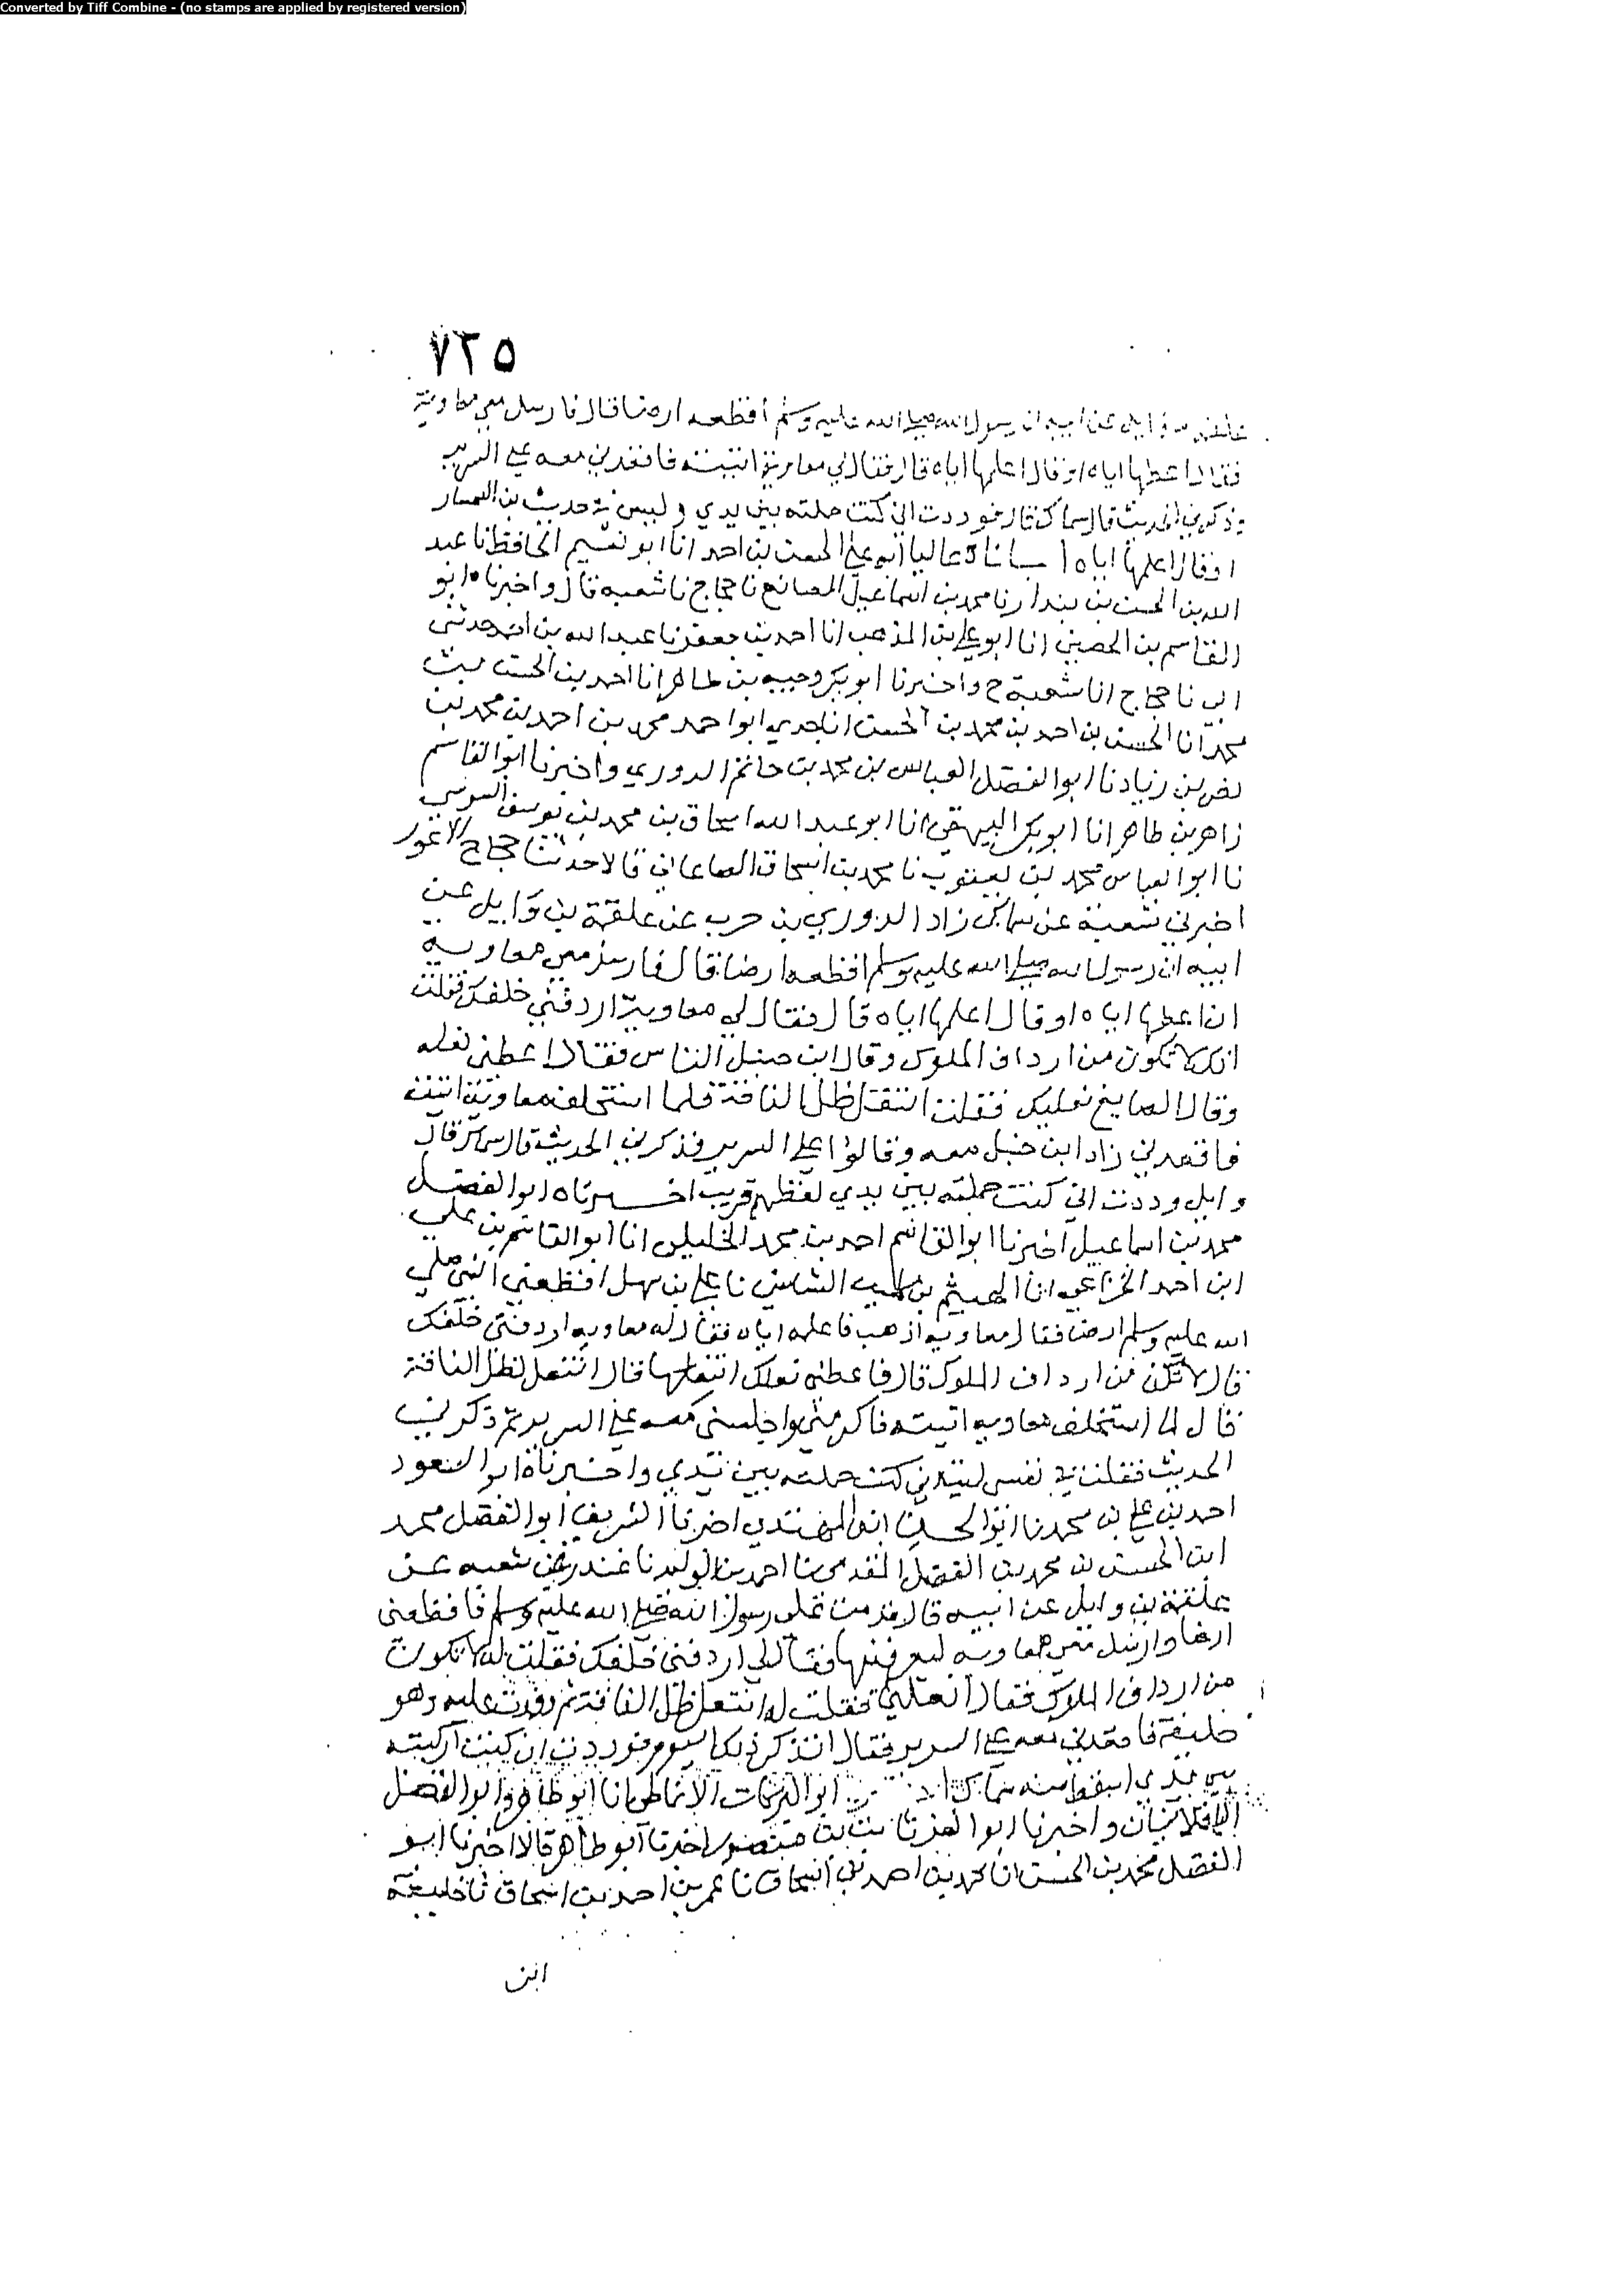 Converted by Tiff Combine - (no stamps are applied by registered version)
٧٢٥
علقمة بن وايل عن ابيه ان رسول الله صلى الله عليه وسلم أقطعه ارضا قال فارسل معي معاوية
فقال اعطها اياه او قال اعلمها اياه قال فقال لي معاوية اتيته فاقعدني معه على السرير
فذكرني الحديث قال سماك فقال فوددت اني كنت حملته بين يدي وليس في حديث بن السمسار
او قال اعلمها اياه انباناه عاليا أبو علي الحسن بن احمد انا ابو نعيم الحافظ نا عبد
الله بن الحسن بن بندار نا محمد بن اسماعيل الصائغ نا حجاج نا شعبه قال واخبرناه ابو
القاسم بن الحصين انا ابو علي بن المذهب انا احمد بن جعفر نا عبد الله بن احمد حدثني
ابي نا حجاج انا شعبة ح واخبرنا ابو بكر وجيه بن طاهر انا احمد بن الحسن بن
محمد انا الحسن بن احمد بن محمد بن الحسن انا جدي ابو احمد محمد بن احمد بن محمد بن
بن زياد نا ابو الفضل العباس بن محمد بن حاتم الدوري واخبرنا ابو القاسم
زاهر بن طاهر انا ابو بكر البيهقي انا ابو عبد الله اسحاق بن محمد بن يوسف السوسي
نا ابو العباس محمد بن يعقوب نا محمد بن اسحاق الصاغاني قالا حدثنا حجاج الاعور
اخبرني شعبة عن سماك زاد الدوري بن حرب عن علقمة بن وايل عن
ابيه ان رسول الله صلى الله عليه وسلم اقطعه ارضا قال فارسل معي معاويه
ان اعطها اياه او قال اعلمها اياه قال فقال لي معاوية اردفني خلفك فقلت
انك لا تكون من ارداف الملوك وقال ابن حنبل الناس فقال اعطني نعله
وقال الصايغ نعليك فقلت انتقل ظل الناقة فلما استخلف معاوية اتيته
فاقعدني زاد ابن حنبل معه وقالوا على السرير فذكرني الحديث قال سماك قال
وايل وددت اني كنت حملته بين يدي لفظهم قريب اخبرناه ابو الفضل
محمد بن اسماعيل اخبرنا ابو القاسم احمد بن محمد الخليلي انا ابو القاسم بن علي
ابن احمد الخزاعي انا الهيثم بن كليب الشاشي نا علي بن سهل اقطعني النبي صلى
الله عليه وسلم ارضا فقال معاويه اذهب فاعلمه اياه فقال له معاويه اردفني خلفك
قال لا تكن من ارداف الملوك قال فاعطني نعلك انتعلها قال انتعل بظل الناقة
قال لما استخلف معاويه اتيته فاكرمني واجلسني معه على السرير ثم ذكرني
الحديث فقلت في نفسي ليتني كنت حملته بين يدي واخبرناه ابو السعود
احمد بن علي بن محمد نا ابو الحسين ابن المهتدي اخبرنا الشريف ابو الفضل محمد
ابن الحسن بن محمد بن الفضل نا احمد بن الوليد نا غندر عن شعبه عن
علقمة بن وايل عن ابيه قال قدمت على رسول الله صلى الله عليه وسلم فاقطعني
ارضا وارسل معي معاويه ليعرفنيها فقال لي اردفني خلفك فقلت له لا تكون
من ارداف الملوك فقال أنعلني فقلت له انتعل ظل الناقة ثم وفدت عليه وهو
خليفة فاقعدني معه على السرير فقال اتذكر ذلك اليوم فوددت ان كنت اركبته
بين يدي اسقط منه سماك ابو البركات الانماطي انا ابو طاهر وابو الفضل
الباقلانيان واخبرنا ابو العز ثابت بن منصور اخبرنا ابو طاهر قالا اخبرنا ابو
الفضل محمد بن الحسن انا محمد بن احمد بن اسحاق نا عمر بن احمد بن اسحاق نا خليفة
ابن